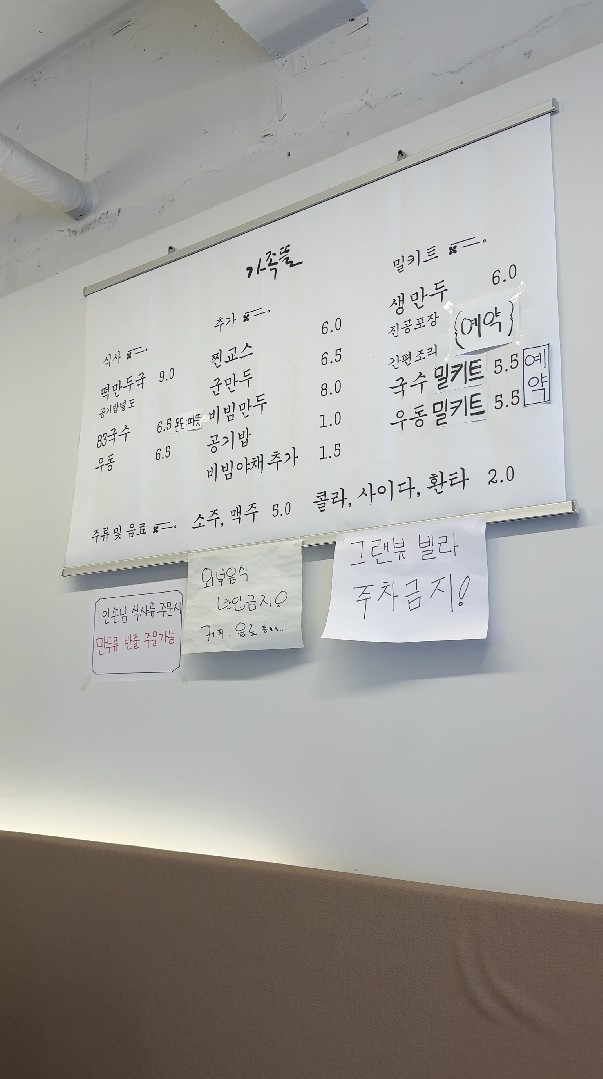 가족뜰
식사
떡만두국 9.0
공기밥별도
83국수 6.5
우동 6.5
추가
찐교스 6.0
군만두 6.5
비빔만두 8.0
공기밥 1.0
비빔야채추가 1.5
밀키트
생만두 6.0
진공포장
(예약)
간편조리
국수밀키트 5.5
우동밀키트 5.5
예약
주류 및 음료
소주, 맥주 5.0 콜라, 사이다, 환타 2.0
인손님 식사류 주문시
만두류 반줄 주문가능
외부음식
반입금지!
그랜뷰 빌라
주차금지!